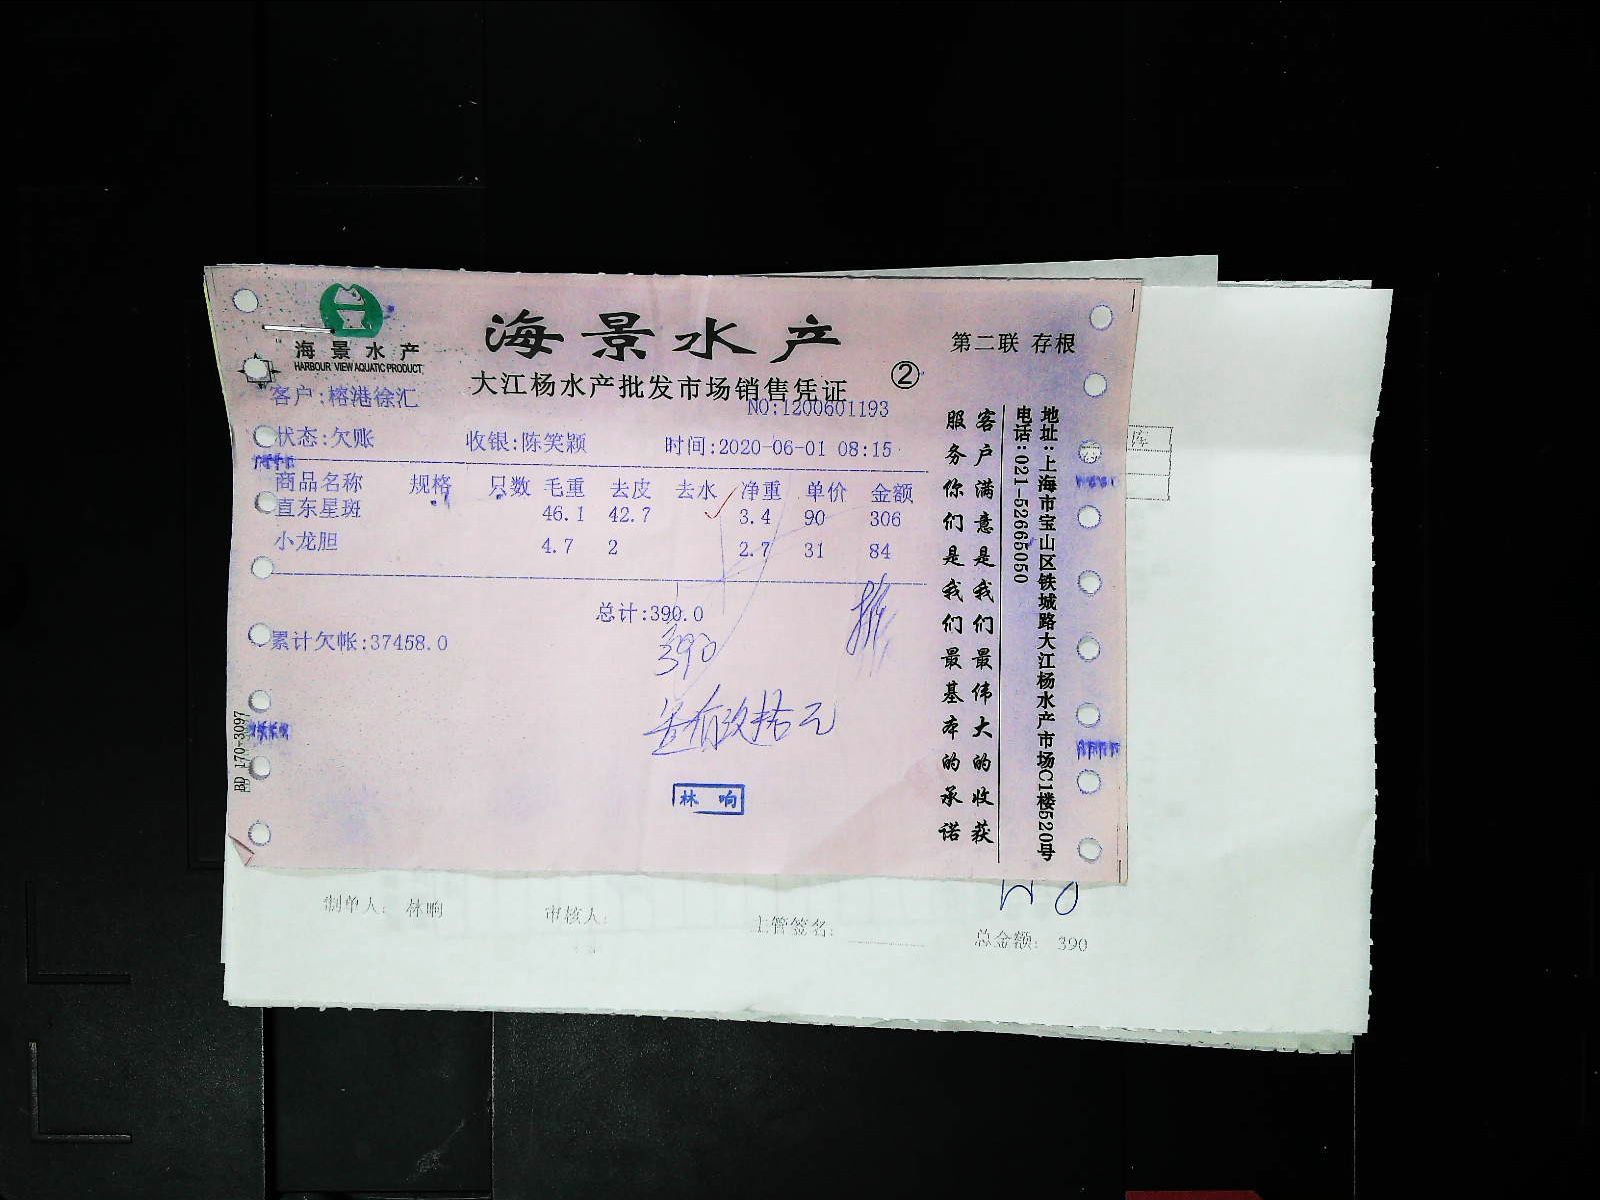 海景水产
HARBOUR VIEW AQUATIC PRODUCT
海景水产
大江杨水产批发市场销售凭证
②
第二联 存根
NO:1200601193
客户:榕港徐汇
状态:欠账 收银:陈笑颖 时间:2020-06-01 08:15
商品名称 规格 只数 毛重 去皮 去水 净重 单价 金额
直东星斑 46.1 42.7 3.4 90 306
小龙胆 4.7 2 2.7 31 84
总计:390.0
累计欠帐:37458.0
390
叁佰玖拾元
林响
BD 170-3097
客户满意是我们最伟大的收获
服务你们是我们最基本的承诺
地址:上海市宝山区铁城路大江杨水产市场C1楼520号
电话:021-52665050
库
制单人: 林响 审核人: 主管签名: 总金额: 390